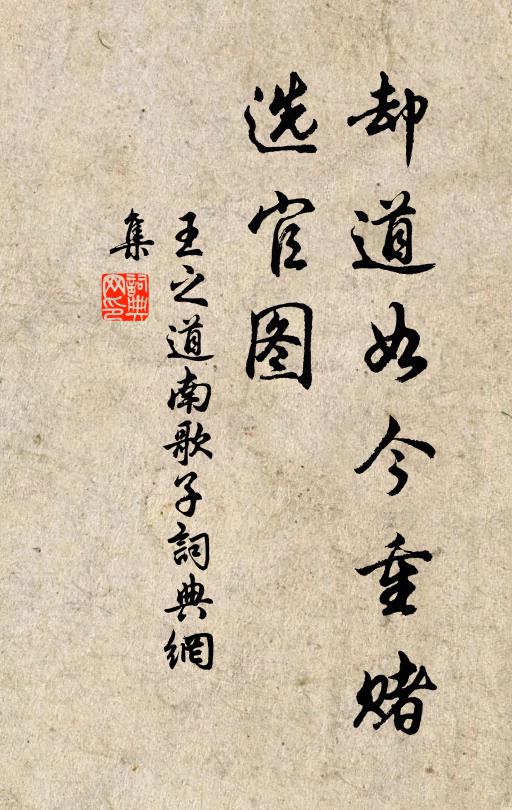 却道如今重赌
选官图
王之道南歌子詞典網
集
詞典网印